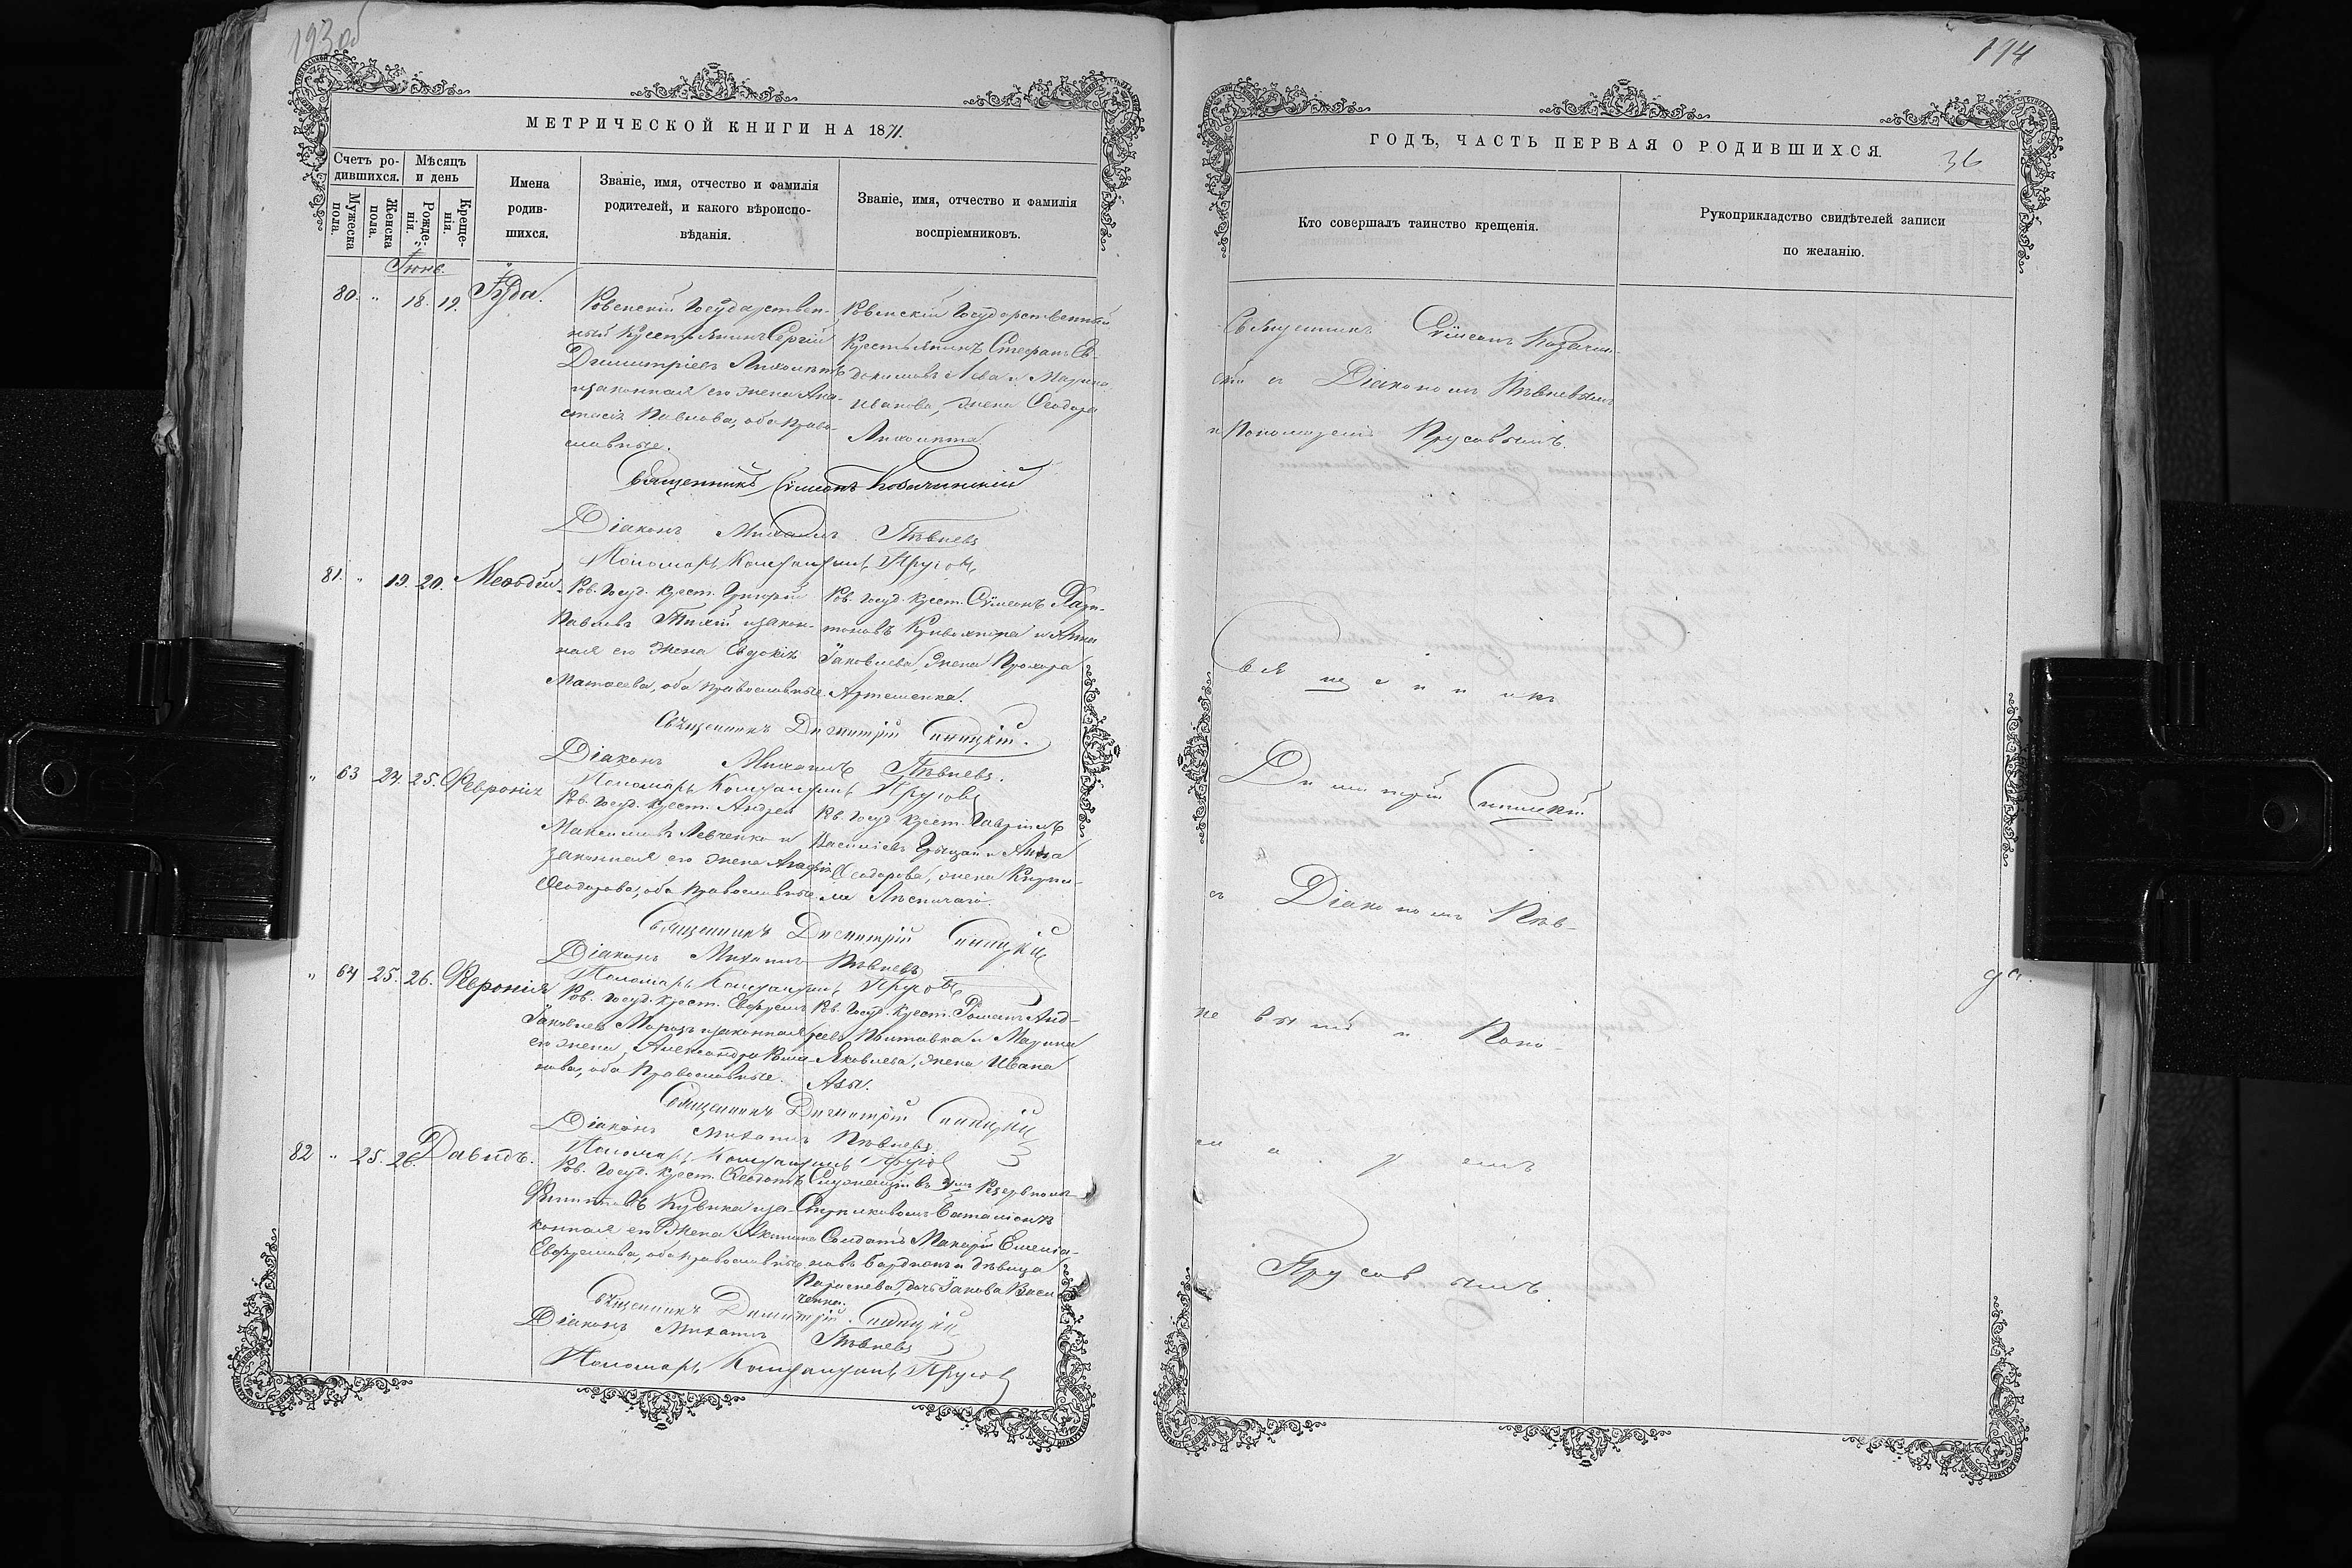 193 об
МЕТРИЧЕСКОЙ КНИГИ НА 1871.
Счетъ ро-
дившихся.
Мѣсяцъ
и день
Мужеска
пола.
Женска
пола.
Рожде-
нія.
Креще-
нія.
Имена
родив-
шихся.
Званіе, имя, отчество и фамилія
родителей, и какого вѣроиспо-
вѣданія.
Званіе, имя, отчество и фамилія
воспріемниковъ.
Іюнь.
80. " 18. 19. Іуда.
Ровенскій Государствен-
ный Крестьянинъ Сергій
Димитріевъ Лихолѣтъ
и законная его жена Ана-
стасія Павлова, оба Право-
славные.
Ровенскій Государственный
Крестьянинъ Стефанъ Ев-
докимовъ Лева и Марина
Иванова, жена Ѳеодора
Лихолѣта.
Священникъ Сѵмеонъ Козачинскій
Діаконъ Михаилъ Пѣвневъ
Пономарь Константинъ Прусовъ
81. " 19. 20. Меѳодій.
Ров. Госуд. Крест. Григорій
Павловъ Тихій и закон-
ная его жена Евдокія
Матѳеева, оба Православные.
Ров. Госуд. Крест. Сѵмеонъ Хари-
тоновъ и Анна
Іаковлева, жена Прохора
Артеменка.
Священникъ Димитрій Синицкій.
Діаконъ Михаилъ Пѣвневъ.
Пономарь Константинъ Прусовъ
" 63 24. 25. Ѳевронія
Ров. Госуд. Крест. Андрей
Максимовъ Левченко и
законная его жена Агафія
Ѳеодорова, оба Православные.
Ров. Госуд. Крест. Гавріилъ
Василіевъ Грицай и Анна
Ѳеодорова, жена Кирил-
ла Лѣсничаго.
Священникъ Димитрій Синицкій
Діаконъ Михаилъ Пѣвневъ
Пономарь Константинъ Прусовъ
" 64 25. 26. Ѳевронія
Ров. Госуд. Крест. Ефремъ
Іаковлевъ Морозъ и законная
его жена Александра Рома-
нова, оба Православные.
Ров. Госуд. Крест. Романъ Анд-
реевъ Полтавка и Марина
Яковлева, жена Ивана
Азы.
Священникъ Димитрій Синицкій
Діаконъ Михаилъ Пѣвневъ
Пономарь Константинъ Прусовъ
82 " 25. 26. Давидъ.
Ров. Госуд. Крест. Ѳеодотъ
Филипповъ Кубика и за-
конная его жена Акилина
Ефремова, оба Православные.
Служащій въ Резервномъ
Стрѣлковомъ баталіонѣ
Солдатъ Макарій Емеліа-
новъ и дѣвица
дочь Іакова Васи
ченка.
Священникъ Димитрій Синицкій
Діаконъ Михаилъ Пѣвневъ
Пономарь Константинъ Прусовъ
194
ГОДЪ, ЧАСТЬ ПЕРВАЯ О РОДИВШИХСЯ.
36
Кто совершалъ таинство крещенія.
Рукоприкладство свидѣтелей записи
по желанію.
Священникъ Сѵмеонъ Козачин-
скій съ Діакономъ Пѣвневымъ
и Пономаремъ Прусовымъ.
Священникъ
Димитрій Синицкій
съ Діакономъ Пѣв-
невымъ и Поно-
маремъ
Прусовымъ.